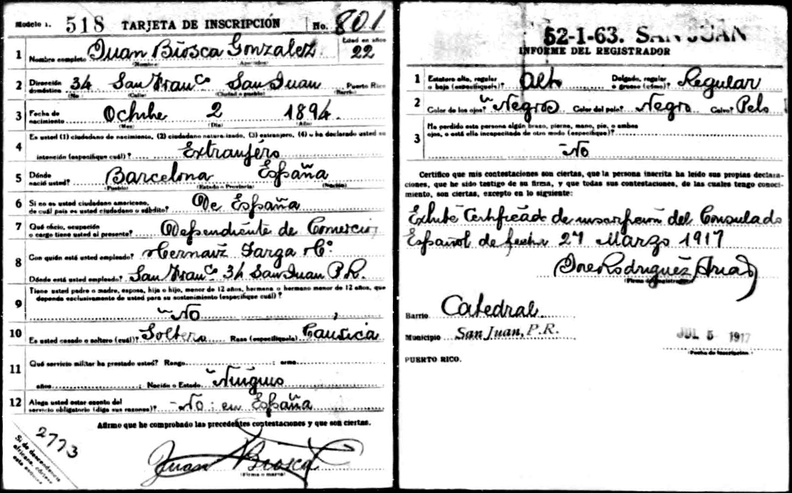 Modelo 1. 518 TARJETA DE INSCRIPCIÓN No. 801
1 Nombre completo Juan Biosca Gonzalez Edad en años 22
2 Dirección doméstica 34 San Franco San Juan Puerto Rico
(No. (Calle) (Ciudad o pueblo) (Barrio)
3 Fecha de nacimiento Octubre 2 1894
(Mes) (Día) (Año)
4 Es usted (1) ciudadano de nacimiento, (2) ciudadano naturalizado, (3) extranjero, (4) o ha declarado usted su
intención (especifique cuál)? Extranjero
5 Dónde nació usted? Barcelona España
(Pueblo) (Estado o Provincia) (Nación)
6 Si no es usted ciudadano americano,
de cuál país es usted ciudadano o súbdito? De España
7 Qué oficio, ocupación
o cargo tiene usted al presente? Dependiente de Comercio
8 Con quién está usted empleado? Hernaiz Targa &Co.
Dónde está usted empleado? San Franco 34 San Juan P.R.
9 Tiene usted padre o madre, esposa, hijo o hijo, menor de 12 años, hermana o hermano menor de 12 años, que
dependa exclusivamente de usted para su sustenimiento (especifique cuál)?
No
10 Es usted casado o soltero (cuál)? Soltero Raza (especifíquela) Caucica
11 Qué servicio militar ha prestado usted? Rango arma
años Nación o Estado Ninguno
12 Alega usted estar exento del
servicio obligatorio (diga sus razones)? No: en España
Afirmo que he comprobado las precedentes contestaciones y que son ciertas.
2773
Juan Biosca
(Firma o marca)
52-1-63. SAN JUAN
INFORME DEL REGISTRADOR
1 Estatura alto, regular
o bajo (especifíquese)? Alto Delgado, regular
o grueso (cómo)? Regular
2 Color de los ojos? Negros Color del pelo? Negro Calvo? Pelo
3 Ha perdido esta persona algún brazo, pierna, mano, pie, o ambos
ojos, o está ella incapacitada de otro modo (especifíquese)?
No
Certifico que mis contestaciones son ciertas, que la persona inscrita ha leído sus propias declara-
ciones, que he sido testigo de su firma, y que todas sus contestaciones, de las cuales tengo conoci-
miento, son ciertas, excepto en lo siguiente:
Exhibe Certificado de inscripcion del Consulado
Español de fecha 27 Marzo 1917
José Rodriguez Arias
Barrio Catedral
Municipio San Juan, P.R. JUL 5 - 1917
(Fecha de inscripción)
PUERTO RICO.